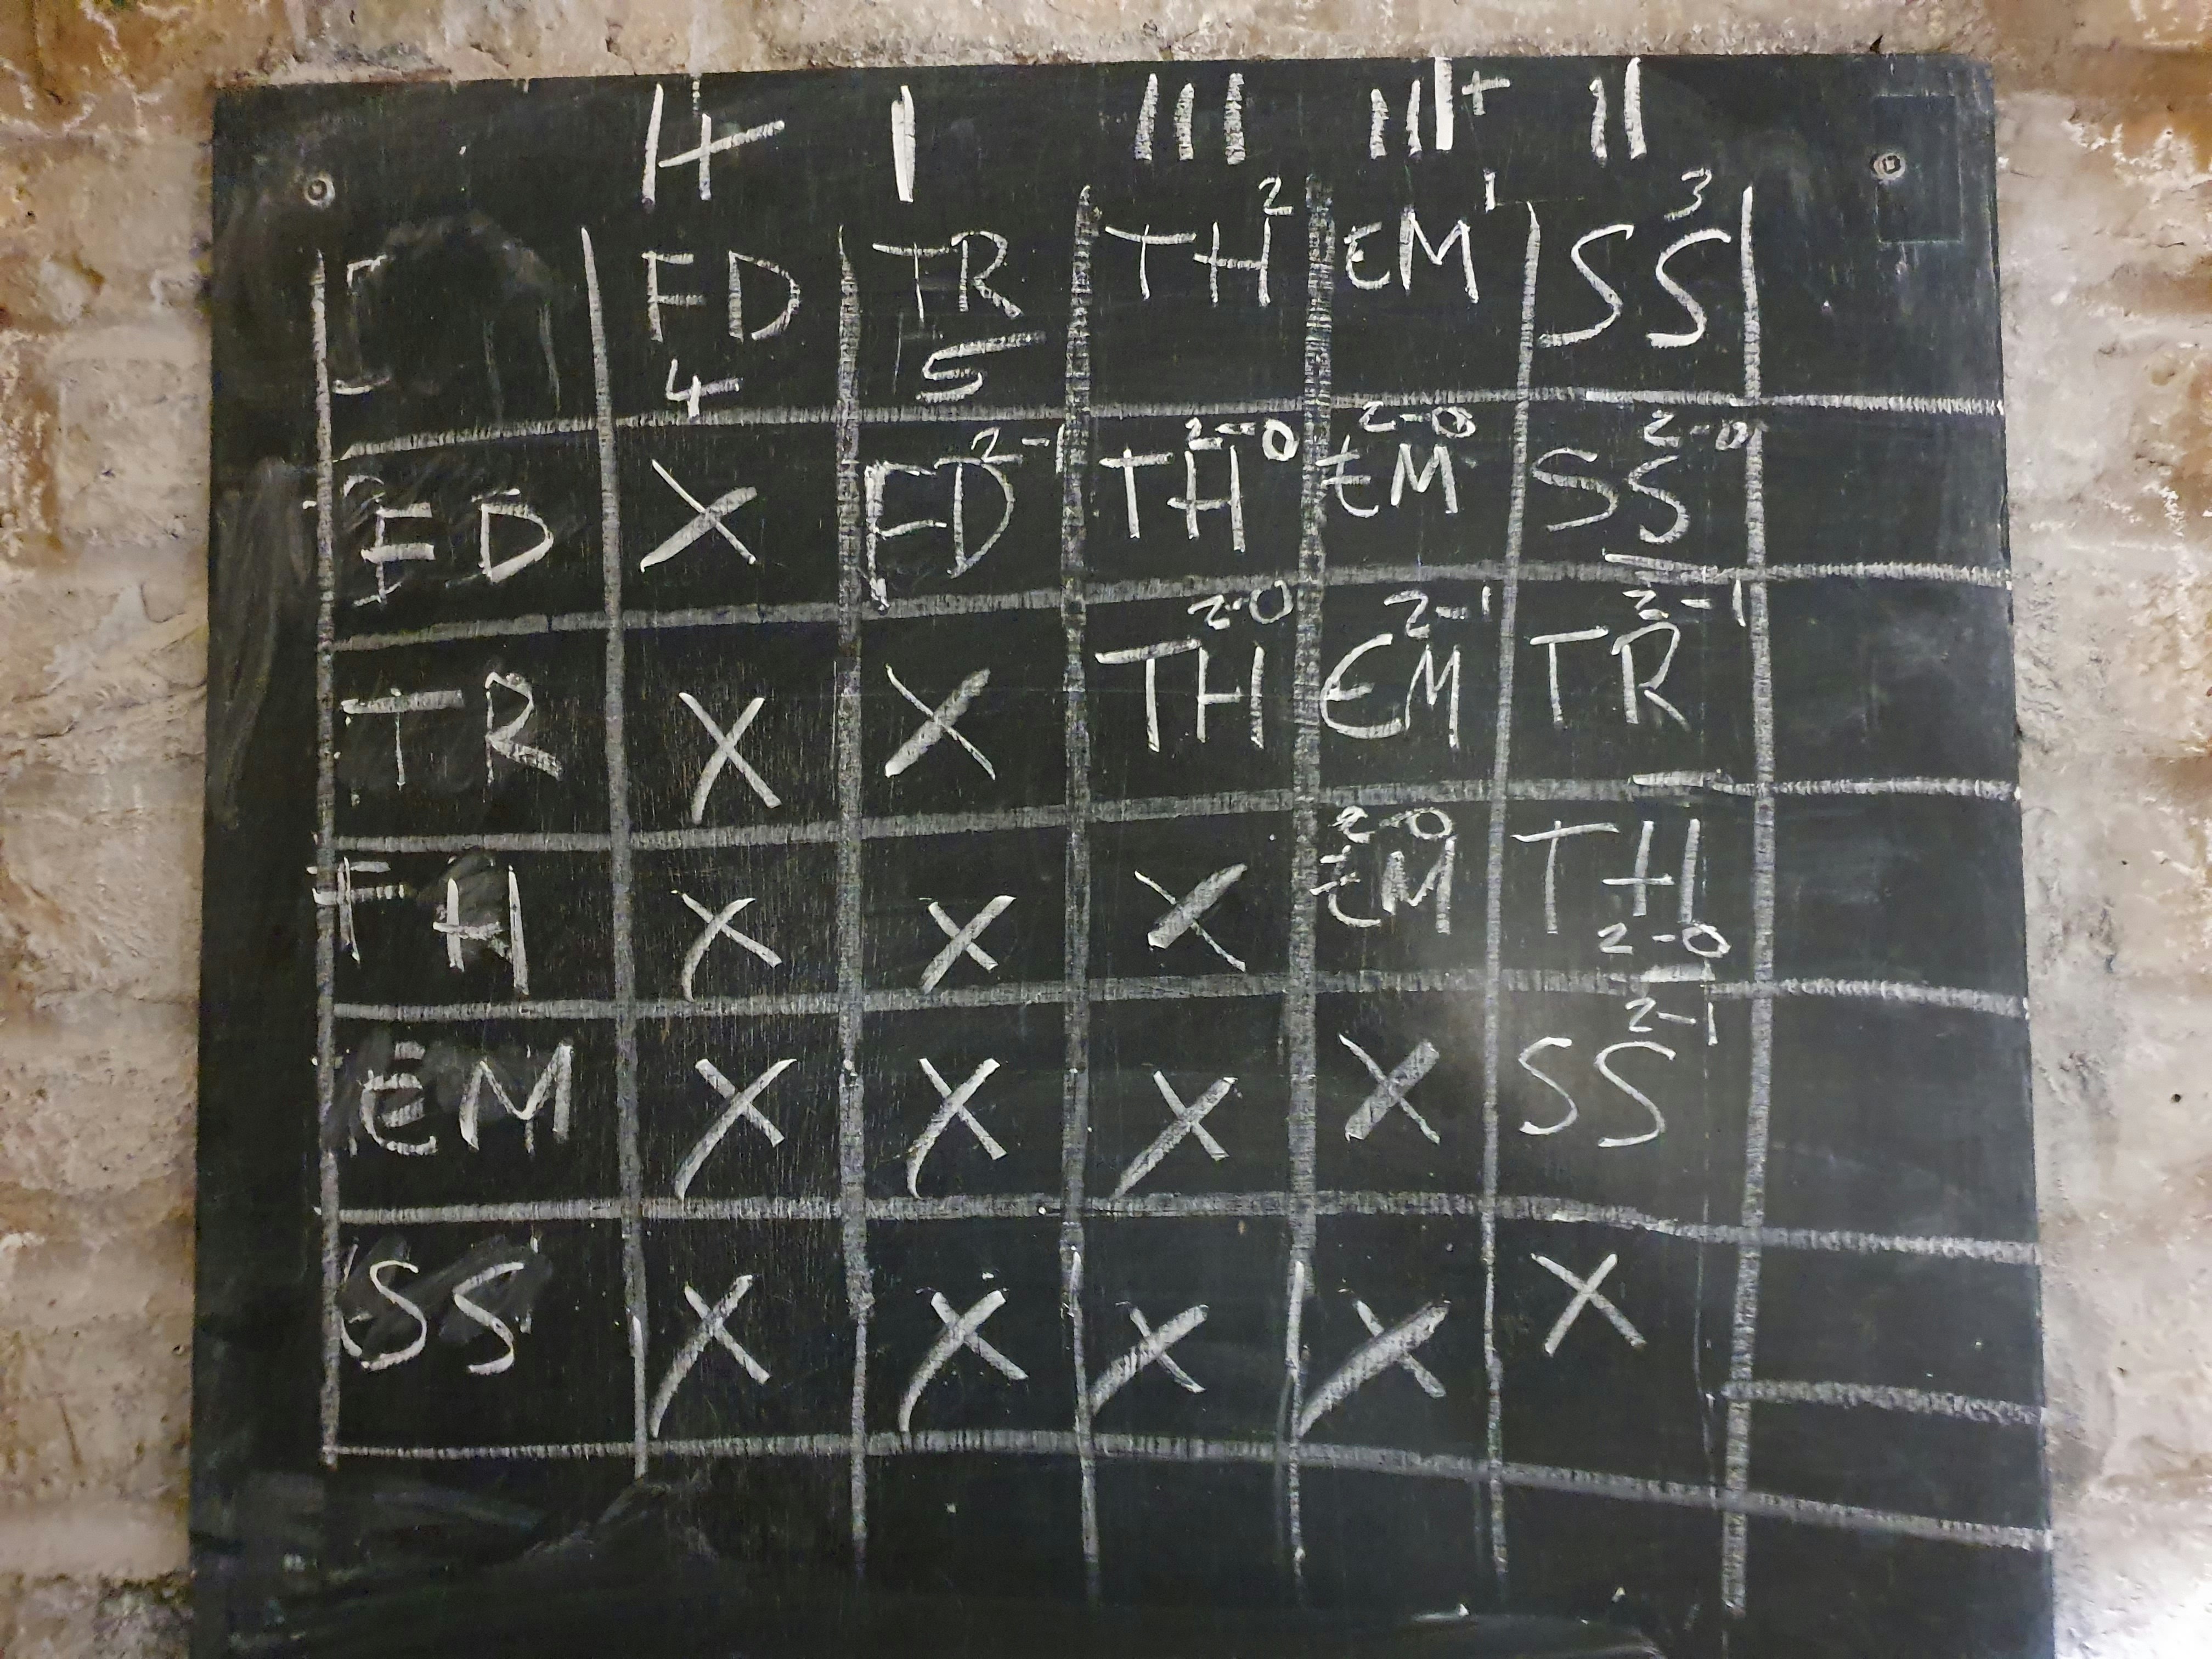 I+ I III III+ II
FD 4 TR 5 TH 2 EM 1 SS 3
FD X FD 2-1 TH 2-0 EM 2-0 SS 2-0
TR X X TH 2-0 EM 2-1 TR 2-1
TH X X X EM 2-0 TH 2-0
EM X X X X SS 2-1
SS X X X X X